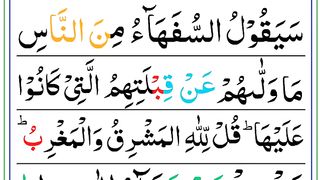 سَيَقُوْلُ السُّفَهَآءُ مِنَ النَّاسِ
مَا وَلّٰىهُمْ عَنْ قِبْلَتِهِمُ الَّتِيْ كَانُوْا
عَلَيْهَا ؕ قُلْ لِّلّٰهِ الْمَشْرِقُ وَالْمَغْرِبُ ؕ